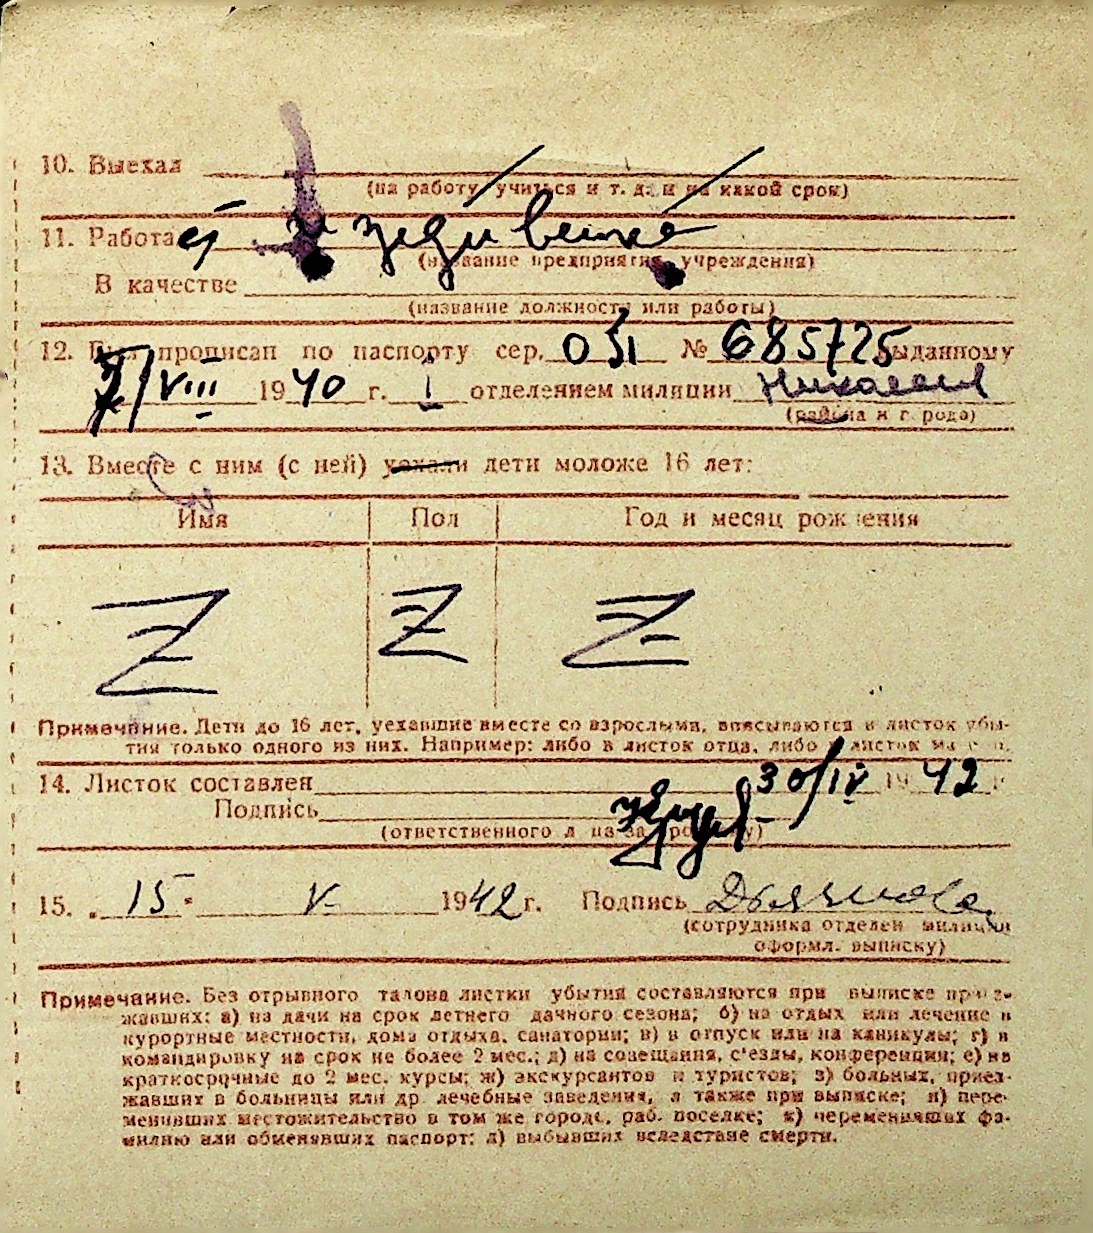 10. Выехал
(на работу учиться и т. д. и на какой срок)
11. Работа
(название предприятия, учреждения)
В качестве
(название должности или работы)
12. Был прописан по паспорту сер. № 685725 выданному
VIII 1940 г. I отделением милиции
(района и города)
13. Вместе с ним (с ней) уехали дети моложе 16 лет:
Имя Пол Год и месяц рождения
Z Z Z
Примечание. Дети до 16 лет, уехавшие вместе со взрослыми, вписываются в листок убы-
тия только одного из них. Например: либо в листок отца, либо в листок
14. Листок составлен 30/IV 1942 г.
Подпись
(ответственного лица за прописку)
15. „ 15 " V 1942 г. Подпись
(сотрудника отделен. милиции
оформл. выписку)
Примечание. Без отрывного талона листки убытия составляются при выписке приез-
жавших: а) на дачи на срок летнего дачного сезона; б) на отдых или лечение в
курортные местности, дома отдыха, санатории; в) в отпуск или на каникулы; г) в
командировку на срок не более 2 мес.; д) на совещания, с'езды, конференции; е) на
краткосрочные до 2 мес. курсы; ж) экскурсантов и туристов; з) больных, приез-
жавших в больницы или др. лечебные заведения, а также при выписке; и) пере-
менивших местожительство в том же городе, раб. поселке; к) переменивших фа-
милию или обменявших паспорт; л) выбывших вследствие смерти.